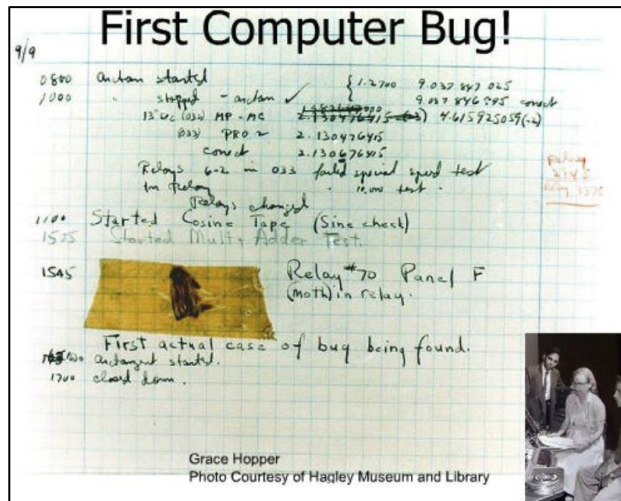 First Computer Bug!
9/9
0800 Antan started
1000 " stopped - antan ✓ { 1.2700 9.037 847 025
9.037 846 995 correct
13"uc (033) MP - MC 2.130476415 (-3) 4.615925059(-2)
(033) PRO 2 2.130476415
correct 2.130676415
Relays 6-2 in 033 failed special speed test
In Relay " 10,000 test.
Relay
2145
Relay 3370
Relays changed
1100 Started Cosine Tape (Sine check)
1525 Started Mult+Adder Test.
1545 Relay #70 Panel F
(moth) in relay.
First actual case of bug being found.
1630 antangent started.
1700 closed down.
Grace Hopper
Photo Courtesy of Hagley Museum and Library